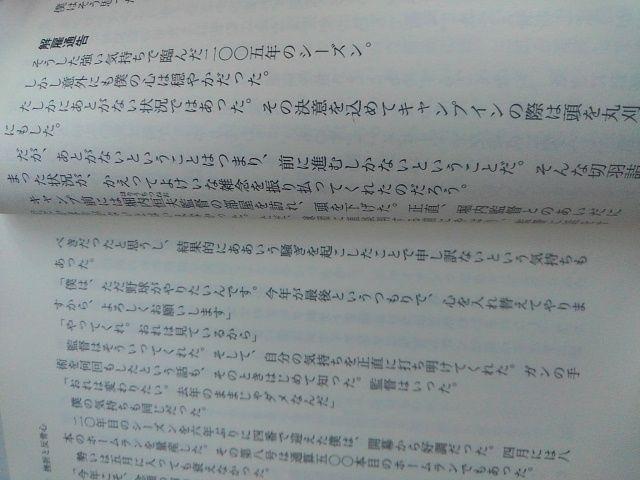 解雇通告
そうした強い気持ちで臨んだ二〇〇五年のシーズン。
しかし意外にも僕の心は穏やかだった。
たしかにあとがない状況ではあった。その決意を込めてキャンプインの際は頭を丸刈
にもした。
だが、あとがないということはつまり、前に進むしかないということだ。そんな切羽詰
まった状況が、かえってよけいな雑念を振り払ってくれたのだろう。
キャンプ前には堀内恒夫監督の部屋を訪れ、頭を下げた。正直、堀内監督とのあいだに
べきだったと思うし、結果的にああいう騒ぎを起こしたことで申し訳ないという気持ちも
あった。
「僕は、ただ野球がやりたいんです。今年が最後というつもりで、心を入れ替えてやりま
すから、よろしくお願いします」
「やってくれ。おれは見ているから」
監督はそういってくれた。そして、自分の気持ちを正直に打ち明けてくれた。ガンの手
術を何回もしたという話も、そのときはじめて知った。監督はいった。
「おれは変わりたい。去年のままじゃダメなんだ」
僕の気持ちも同じだった。
二〇年目のシーズンを六年ぶりに四番で迎えた僕は、開幕から好調だった。四月には八
本のホームランを量産した。その第八号は通算五〇〇本目のホームランでもあった。
勢いは五月に入っても衰えなかった。
挫折と反骨心